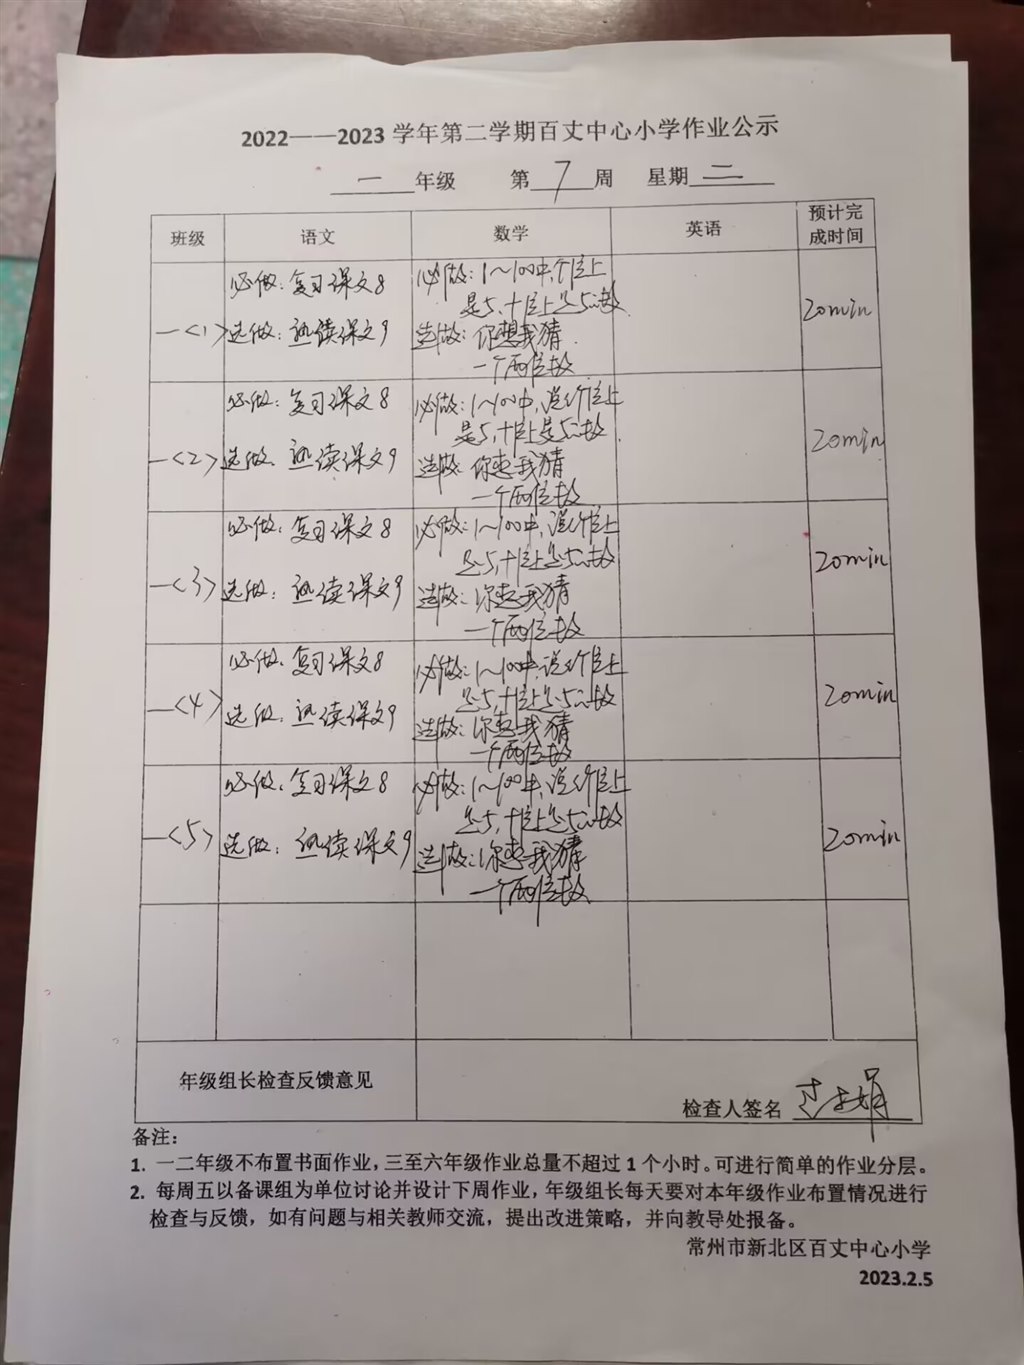 2022——2023 学年第二学期百丈中心小学作业公示
一 年级 第 7 周 星期 二
班级 语文 数学 英语 预计完成时间
一<1> 必做：复习课文8 必做：1～100中，个位上 20min
是5，十位上是5的数
选做：熟读课文9 选做：你想我猜
一个两位数
一<2> 必做：复习课文8 必做：1～100中，说个位上 20min
是5，十位上是5的数
选做：熟读课文9 选做：你想我猜
一个两位数
一<3> 必做：复习课文8 必做：1～100中，说个位上 20min
是5，十位上是5的数
选做：熟读课文9 选做：你想我猜
一个两位数
一<4> 必做：复习课文8 必做：1～100中，说个位上 20min
是5，十位上是5的数
选做：熟读课文9 选做：你想我猜
一个两位数
一<5> 必做：复习课文8 必做：1～100中，说个位上 20min
是5，十位上是5的数
选做：熟读课文9 选做：你想我猜
一个两位数
年级组长检查反馈意见
检查人签名
备注：
1. 一二年级不布置书面作业，三至六年级作业总量不超过 1 个小时。可进行简单的作业分层。
2. 每周五以备课组为单位讨论并设计下周作业，年级组长每天要对本年级作业布置情况进行
检查与反馈，如有问题与相关教师交流，提出改进策略，并向教导处报备。
常州市新北区百丈中心小学
2023.2.5